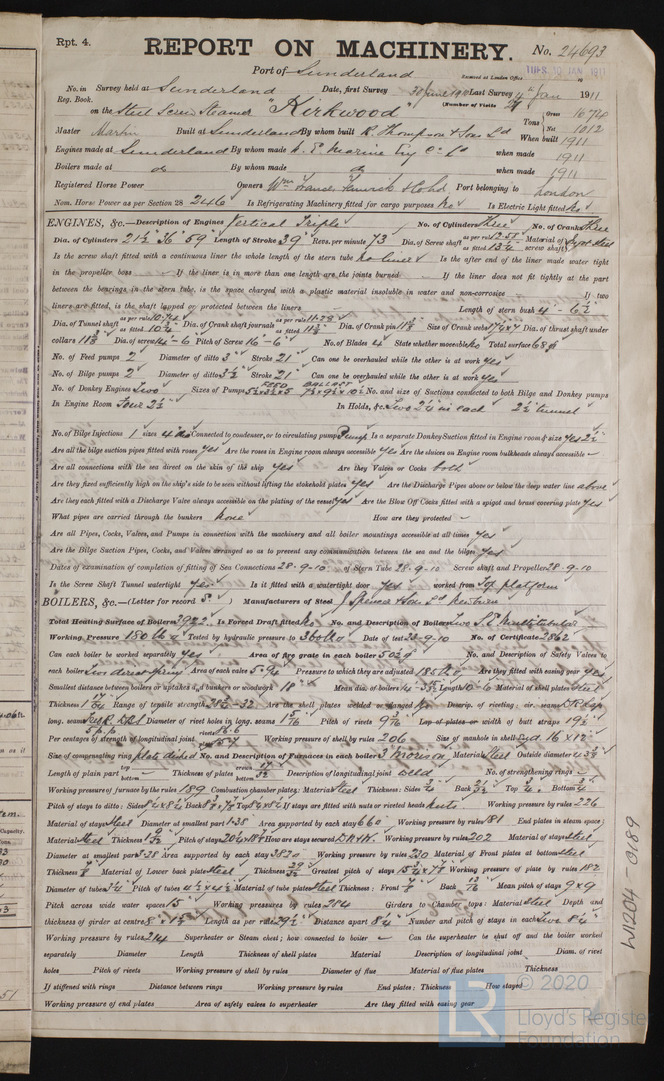 Rpt. 4.
REPORT ON MACHINERY.
No. 24693
Port of Sunderland
Received at London Office TUES. 10 JAN 1911
No. in Survey held at Sunderland Date, first Survey 30 June 1910 Last Survey 4th Jan 1911
Reg. Book. (Number of Visits
on the Steel Screw Steamer "Kirkwood" Tons Gross 1674 Net 1012
Master Martin Built at Sunderland By whom built R. Thompson & Sons Ld When built 1911
Engines made at Sunderland By whom made N. E. Marine Eng Co Ld when made 1911
Boilers made at do By whom made do when made 1911
Registered Horse Power Owners Wm France Fenwick & Co Ld Port belonging to London
Nom. Horse Power as per Section 28 246 Is Refrigerating Machinery fitted for cargo purposes No Is Electric Light fitted No
ENGINES, &c.—Description of Engines Vertical Triple No. of Cylinders Three No. of Cranks Three
Dia. of Cylinders 21½ 36 59 Length of Stroke 39 Revs. per minute 73 Dia. of Screw shaft as per rule 12.51 as fitted 13½ Material of screw shaft Ingot steel
Is the screw shaft fitted with a continuous liner the whole length of the stern tube No liner Is the after end of the liner made water tight
in the propeller boss If the liner is in more than one length are the joints burned If the liner does not fit tightly at the part
between the bearings in the stern tube, is the space charged with a plastic material insoluble in water and non-corrosive If two
liners are fitted, is the shaft lapped or protected between the liners Length of stern bush 4-6½
Dia. of Tunnel shaft as per rule 10.74 as fitted Dia. of Crank shaft journals as per rule 11.28 as fitted Dia. of Crank pin 11¾ Size of Crank webs Dia. of thrust shaft under
collars 11¾ Dia. of screw 14-6 Pitch of Screw 16-6 No. of Blades 4 State whether moveable No Total surface 68
No. of Feed pumps 2 Diameter of ditto 3 Stroke 21 Can one be overhauled while the other is at work yes
No. of Bilge pumps 2 Diameter of ditto 3½ Stroke 21 Can one be overhauled while the other is at work yes
No. of Donkey Engines Two Sizes of Pumps FEED BALLAST No. and size of Suctions connected to both Bilge and Donkey pumps
In Engine Room Four 2½ In Holds, &c. Two in each 2½ tunnel
No. of Bilge Injections 1 sizes Connected to condenser, or to circulating pump Pump Is a separate Donkey Suction fitted in Engine room & size yes 2½
Are all the bilge suction pipes fitted with roses yes Are the roses in Engine room always accessible yes Are the sluices on Engine room bulkheads always accessible
Are all connections with the sea direct on the skin of the ship yes Are they Valves or Cocks both
Are they fixed sufficiently high on the ship's side to be seen without lifting the stokehold plates yes Are the Discharge Pipes above or below the deep water line above
Are they each fitted with a Discharge Valve always accessible on the plating of the vessel yes Are the Blow Off Cocks fitted with a spigot and brass covering plate yes
What pipes are carried through the bunkers None How are they protected
Are all Pipes, Cocks, Valves, and Pumps in connection with the machinery and all boiler mountings accessible at all times yes
Are the Bilge Suction Pipes, Cocks, and Valves arranged so as to prevent any communication between the sea and the bilges yes
Dates of examination of completion of fitting of Sea Connections 28-9-10 of Stern Tube 28-9-10 Screw shaft and Propeller 28-9-10
Is the Screw Shaft Tunnel watertight yes Is it fitted with a watertight door yes worked from Top platform
BOILERS, &c.—(Letter for record S.) Manufacturers of Steel J. Spencer & Son Ld Newburn
Total Heating Surface of Boilers 3922 Is Forced Draft fitted No No. and Description of Boilers Two S.E. Multitubular
Working Pressure 180 lbs Tested by hydraulic pressure to 360 lbs Date of test 23-9-10 No. of Certificate 2862
Can each boiler be worked separately yes Area of fire grate in each boiler 50 No. and Description of Safety Valves to
each boiler Two direct spring Area of each valve 5.94 Pressure to which they are adjusted 185 lbs Are they fitted with easing gear yes
Smallest distance between boilers or uptakes and bunkers or woodwork 18" Mean dia. of boilers Length 10-6 Material of shell plates Steel
Thickness Range of tensile strength 28½-32 Are the shell plates welded or flanged No Descrip. of riveting: cir. seams DR lap
long. seams Diameter of rivet holes in long. seams 1 5/16 Pitch of rivets Lap of plates or width of butt straps 19½
Per centages of strength of longitudinal joint Working pressure of shell by rules 206 Size of manhole in shell End 16 x 12
Size of compensating ring plate dished No. and Description of Furnaces in each boiler 3 Morison Material Steel Outside diameter
Length of plain part top bottom Thickness of plates crown bottom Description of longitudinal joint weld No. of strengthening rings
Working pressure of furnace by the rules 189 Combustion chamber plates: Material Steel Thickness: Sides Back Top Bottom
Pitch of stays to ditto: Sides Back Top If stays are fitted with nuts or riveted heads nuts Working pressure by rules 226
Material of stays Steel Diameter at smallest part 1.35 Area supported by each stay 660 Working pressure by rules 181 End plates in steam space;
Material Steel Thickness Pitch of stays How are stays secured DN&W. Working pressure by rules 202 Material of stays Steel
Diameter at smallest part Area supported by each stay Working pressure by rules 230 Material of Front plates at bottom Steel
Thickness Material of Lower back plate Steel Thickness 29/32 Greatest pitch of stays Working pressure of plate by rules 182
Diameter of tubes Pitch of tubes Material of tube plates Steel Thickness: Front Back Mean pitch of stays 9 x 9
Pitch across wide water spaces 15 Working pressures by rules 214 Girders to Chamber tops: Material Steel Depth and
thickness of girder at centre Length as per rule 29½ Distance apart 8¼ Number and pitch of stays in each Two 8¼
Working pressure by rules 214 Superheater or Steam chest; how connected to boiler Can the superheater be shut off and the boiler worked
separately Diameter Length Thickness of shell plates Material Description of longitudinal joint Diam. of rivet
holes Pitch of rivets Working pressure of shell by rules Diameter of flue Material of flue plates Thickness
If stiffened with rings Distance between rings Working pressure by rules End plates: Thickness How stayed
Working pressure of end plates Area of safety valves to superheater Are they fitted with easing gear
W1204-0189
LR
© 2020
Lloyd's Register
Foundation